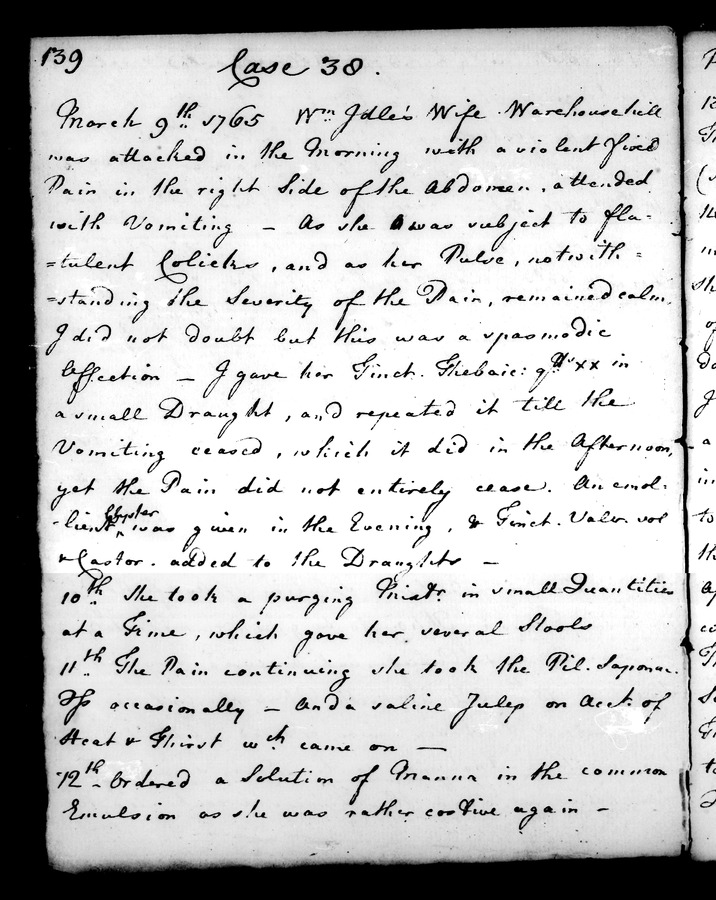 139
Case 38.
March 9th 1765 Wm Idle's Wife Warehousehill
was attacked in the Morning with a violent fixed
Pain in the right Side of the Abdomen, attended
with Vomiting - As she was subject to fla-
=tulent Colicks, and as her Pulse, notwith=
=standing the Severity of the Pain, remained calm,
I did not doubt but this was a spasmodic
Affection - I gave her Tinct. Thebaic: gtts xx in
a small Draught, and repeated it till the
Vomiting ceased, which it did in the Afternoon,
yet the Pain did not entirely cease. An emol-
-lient Clyster was given in the Evening, & Tinct. Valer. vol
& Castor. added to the Draughts -
10th She took a purging Mixtr in small Quantities
at a Time, which gave her several Stools
11th The Pain continuing she took the Pil. Saponac.
occasionally - And a saline Julep on Acct. of
Heat & Thirst wch came on -
12th Ordered a Solution of Manna in the common
Emulsion as she was rather costive again -